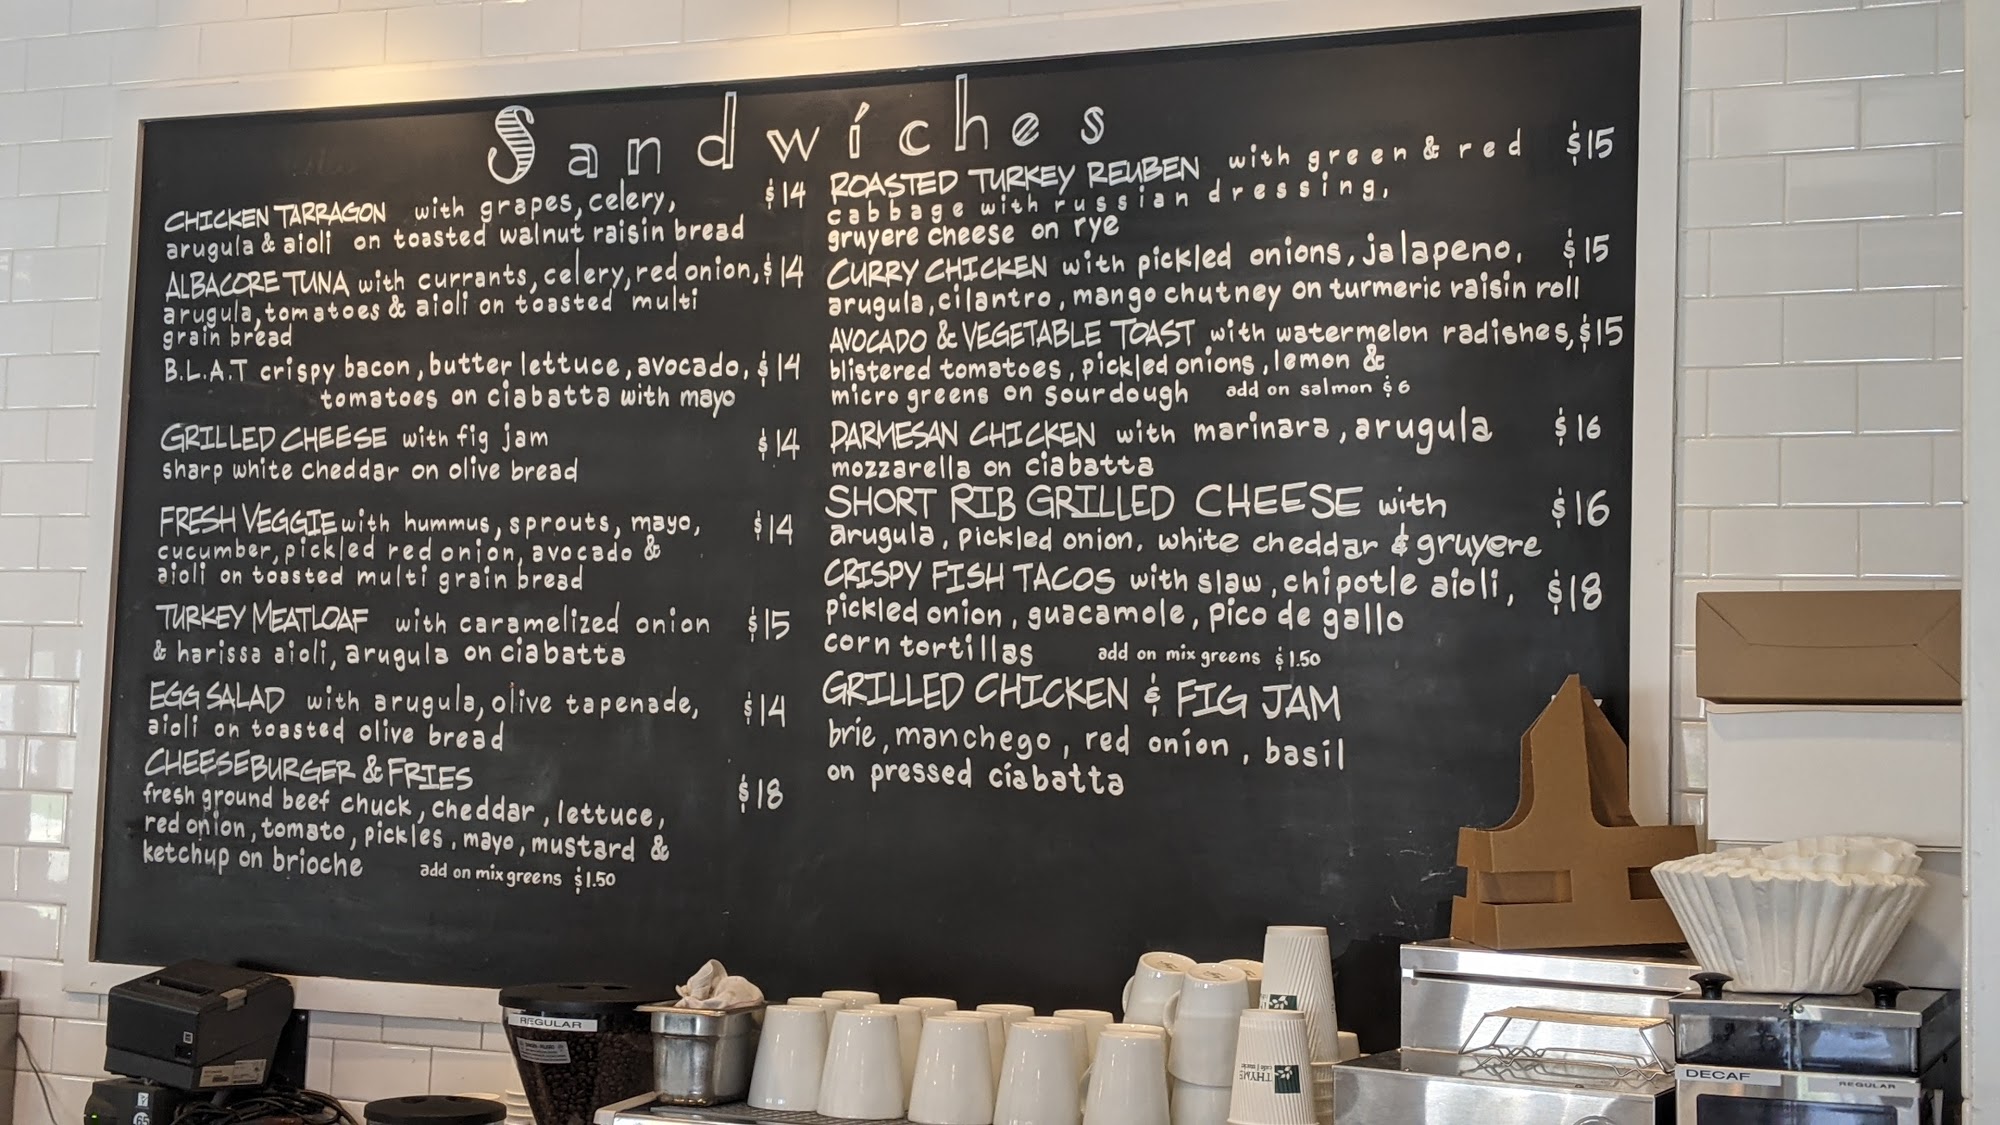 Sandwiches
CHICKEN TARRAGON with grapes, celery, $14
arugula & aioli on toasted walnut raisin bread
ALBACORE TUNA with currants, celery, red onion, $14
arugula, tomatoes & aioli on toasted multi
grain bread
B.L.A.T crispy bacon, butter lettuce, avocado, $14
tomatoes on ciabatta with mayo
GRILLED CHEESE with fig jam $14
sharp white cheddar on olive bread
FRESH VEGGIE with hummus, sprouts, mayo, $14
cucumber, pickled red onion, avocado &
aioli on toasted multi grain bread
TURKEY MEATLOAF with caramelized onion $15
& harissa aioli, arugula on ciabatta
EGG SALAD with arugula, olive tapenade, $14
aioli on toasted olive bread
CHEESEBURGER & FRIES $18
fresh ground beef chuck, cheddar, lettuce,
red onion, tomato, pickles, mayo, mustard &
ketchup on brioche add on mix greens $1.50
ROASTED TURKEY REUBEN with green & red $15
cabbage with russian dressing,
gruyere cheese on rye
CURRY CHICKEN with pickled onions, jalapeno, $15
arugula, cilantro, mango chutney on turmeric raisin roll
AVOCADO & VEGETABLE TOAST with watermelon radishes, $15
blistered tomatoes, pickled onions, lemon &
micro greens on sourdough add on salmon $6
PARMESAN CHICKEN with marinara, arugula $16
mozzarella on ciabatta
SHORT RIB GRILLED CHEESE with $16
arugula, pickled onion, white cheddar & gruyere
CRISPY FISH TACOS with slaw, chipotle aioli, $18
pickled onion, guacamole, pico de gallo
corn tortillas add on mix greens $1.50
GRILLED CHICKEN & FIG JAM
brie, manchego, red onion, basil
on pressed ciabatta
REGULAR
65
THYME
DECAF
REGULAR